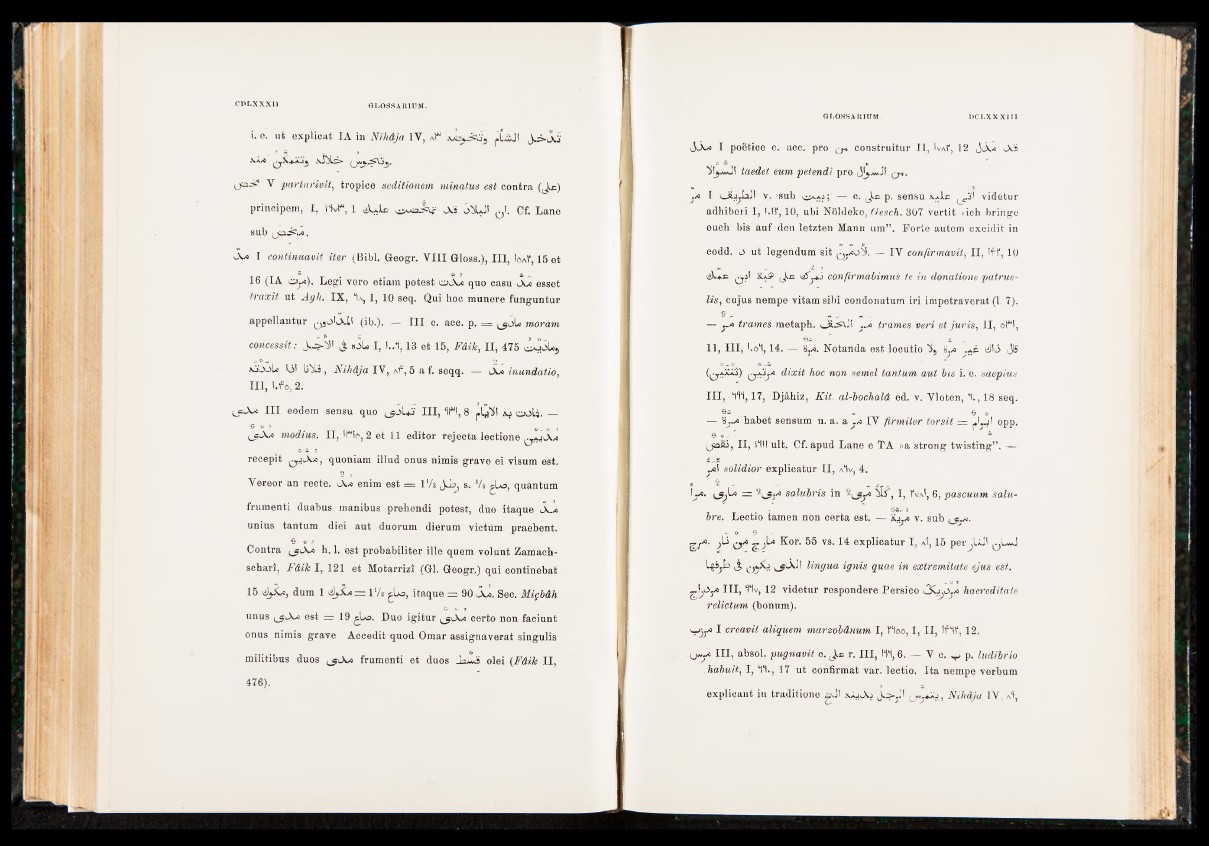 CDLXXXII GLOSSARIUM.
i. e. ut explicat IA in Nihâja IV, ٨٣ تدخل الشأم وتخوضه
وتجوس خلاله وتتمكن منه.
V parturivit, tropice seditionem minatus est contra (على)
principem, I, 1 عليك البلاد قد ان. Cf. Lane
sub
مدّ I continuavit iter (Bibl. Geogr. VIII Gloss.), III, ١٥٨٢, 15 et
16 (IA مرّت). Legi vero etiam potest مدّت quo casu مدّ esset
traxit ut Agh. IX, ٦٨, 1, 10 seq. Qui hoc munere funguntur
appellantur (ib.). — III c. acc. p. = مادى moram
concessit: مادّه فى الأجل I, ١٠٠٦, 13 et 15, Fâik, II, 475
Nihâja IV, ٨٤, 5 a f. seqq. — مدّ inundatio,
III, ١٠٤٥, 2.
مدى III eodem sensu quo تمادى III, 8 به الأيام تمادت. —
مدى modius. II, ١٣١٨, 2 et 11 editor rejecta lectione مديين
recepit مدين, quoniam illud onus nimis grave ei visum est.
Vereor an recte. مدّ enim est = 1¹/₃ رطل s. ¹/₄ صاع, quantum
frumenti duabus manibus prehendi potest, duo itaque مدّ
unius tantum diei aut duorum dierum victum praebent.
Contra مدى h. l. est probabiliter ille quem volunt Zamach-
scharî, Fâik I, 121 et Motarrizî (Gl. Geogr.) qui continebat
15 مكوك, dum 1 مكوك = 1¹/₂ صاع, itaque = 90 مدّ. Sec. Miçbâh
unus مدى est = 19 صاع. Duo igitur مدى certo non faciunt
onus nimis grave Accedit quod Omar assignaverat singulis
militibus duos مدى frumenti et duos قسط olei (Fâik II,
476).
GLOSSARIUM DCLXXXIII
مذل I poëtice c. acc. pro من construitur II, ١٧٨٢, 12 قد مذل
السؤالا taedet eum petendi pro من السؤال.
مرّ I الطريق v. sub — c. على p. sensu أتى عليه videtur
adhiberi I, 10, ubi Nöldeke, Gesch. 307 vertit »ich bringe
euch bis auf den letzten Mann um”. Forte autem excidit in
codd. د ut legendum sit لأدمرنّ. — IV confirmavit, II, 10
confirmabimus te in donatione patrue-
lis, cujus nempe vitam sibi condonatum iri impetraverat (l. 7).
— مرّ trames metaph. مرّ الحقّ trames veri et juris, II, ٥٣١,
11, III, ١٠٥٦, 14. — مرّة. Notanda est locutio قال ذاك غير مرّة ولا
مرّتين (ثنتين) dixit hoc non semel tantum aut bis i. e. saepius
III, 17, Djâhiz, Kit. al-bochalâ ed. v. Vloten, 18 seq.
— مرّة habet sensum n. a. a مرّ IV firmiter torsit = إبرام opp.
نقض, II, ult. Cf. apud Lane e TA »a strong twisting”. —
أمرّ solidior explicatur II, ٨٦٧, 4.
مرأ. مارى = مرىء salubris in كلأ مرىء, I, ٢٧٨١, 6, pascuum salu-
bre. Lectio tamen non certa est. — v. sub مرى.
مرج. مارج من نار Kor. 55 vs. 14 explicatur I, ٨١, 15 per لسان النار
الذى يكون فى طرفها lingua ignis quae in extremitate ejus est.
III, 12 videtur respondere Persico haereditate
relictum (bonum).
I creavit aliquem marzobânum I, ٢٦٥٥, 1, II, 12.
مرس III, absol. pugnavit c. على r. III, 6. — V c. ب p. ludibrio
habuit, I, 17 ut confirmat var. lectio. Ita nempe verbum
explicant in traditione يتمرّس الرجل بدينه الخ, Nihâja IV,